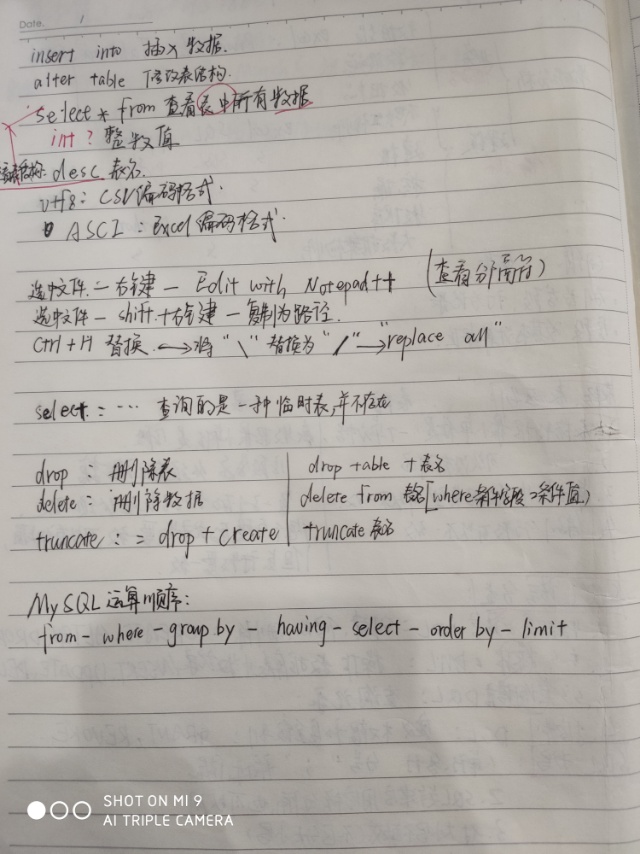 Date. 1
insert into 插入数据.
alter table 修改表结构.
select * from 查看表中所有数据
int? 整数值
desc 表名.
utf8: CSV编码格式.
ASCI : Excel编码格式.
选中文件 — 右键 — Edit with Notepad++ (查看分隔符)
选中文件 — shift + 右键 — 复制为路径.
Ctrl + H 替换. ⟷ 将 "\" 替换为 "/" ⟶ "replace all"
select : … 查询的是一种临时表,并不存在
drop : 删除表 | drop table + 表名
delete : 删除数据 | delete from 表名[where条件字段=条件值)
truncate : = drop + create | truncate 表名
MySQL 运算顺序:
from — where — group by — having — select — order by — limit
SHOT ON MI 9
AI TRIPLE CAMERA